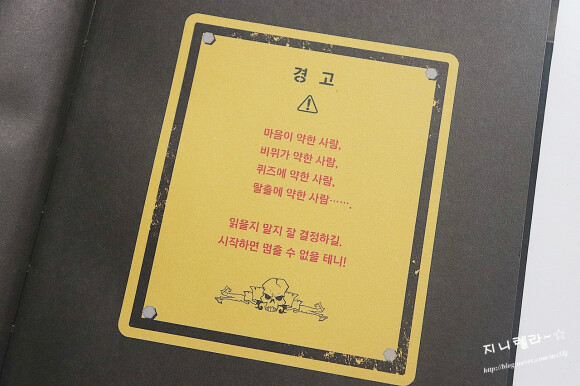 경 고
마음이 약한 사람,
비위가 약한 사람,
퀴즈에 약한 사람,
탈출에 약한 사람…….
읽을지 말지 잘 결정하길.
시작하면 멈출 수 없을 테니!
지니렐라~☆